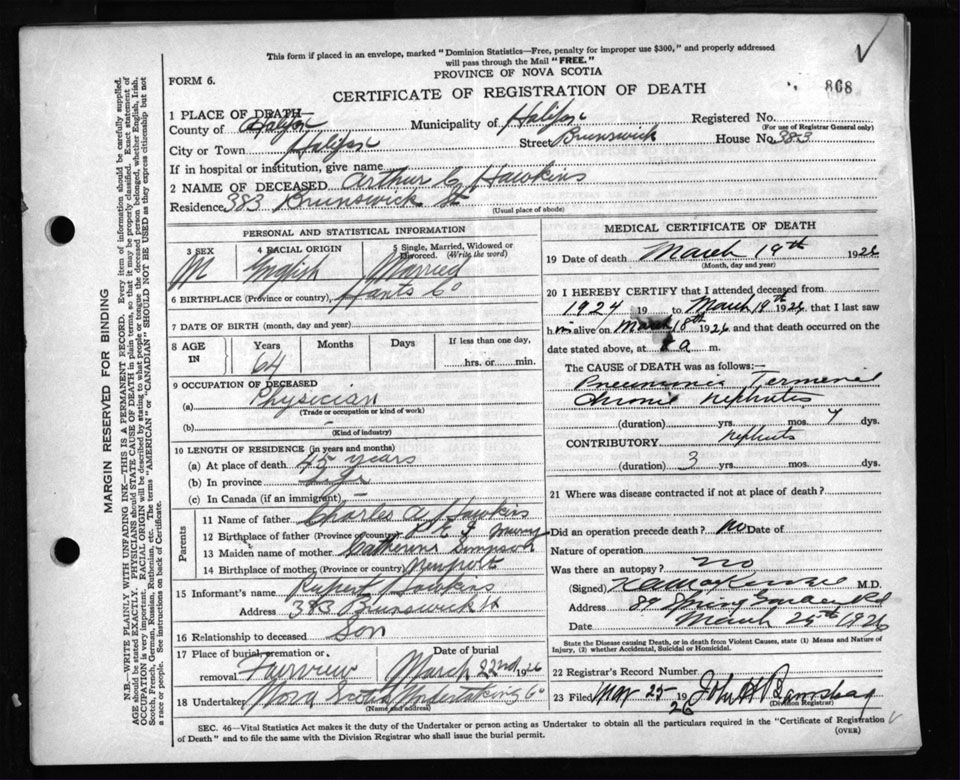 This form if placed in an envelope, marked "Dominion Statistics—Free, penalty for improper use $300," and properly addressed
will pass through the Mail "FREE."
PROVINCE OF NOVA SCOTIA
FORM 6.
CERTIFICATE OF REGISTRATION OF DEATH
868
1 PLACE OF DEATH—
County of Halifax Municipality of Halifax Registered No.
(For use of Registrar General only)
City or Town Halifax Street Brunswick House No. 383
If in hospital or institution, give name
2 NAME OF DECEASED Arthur C Hawkins
Residence 383 Brunswick St
(Usual place of abode)
PERSONAL AND STATISTICAL INFORMATION
3 SEX M
4 RACIAL ORIGIN English
5 Single, Married, Widowed or Divorced. (Write the word) Married
6 BIRTHPLACE (Province or country), Hants Co
7 DATE OF BIRTH (month, day and year)
8 AGE IN Years 64 Months Days If less than one day, hrs. or min.
9 OCCUPATION OF DECEASED
(a) Physician
(Trade or occupation or kind of work)
(b)
(Kind of industry)
10 LENGTH OF RESIDENCE (in years and months)
(a) At place of death 45 years
(b) In province Life
(c) In Canada (if an immigrant) -
Parents
11 Name of father Charles A Hawkins
12 Birthplace of father (Province or country)
13 Maiden name of mother Catherine Simpson
14 Birthplace of mother (Province or country) Newport
15 Informant's name Rupert Hawkins
Address 383 Brunswick St
16 Relationship to deceased Son
17 Place of burial, cremation or removal Fairview
Date of burial March 22nd 1926
18 Undertaker Nova Scotia Undertaking Co
(Name and address)
MEDICAL CERTIFICATE OF DEATH
19 Date of death March 19th 1926
(Month, day and year)
20 I HEREBY CERTIFY that I attended deceased from
1924 19 to March 19th 1926 that I last saw
him alive on March 18th 1926 and that death occurred on the
date stated above, at a m.
The CAUSE OF DEATH was as follows:—
Pneumonia Terminal
Chronic Nephritis
(duration) yrs. mos. 7 dys.
CONTRIBUTORY Nephritis
(duration) 3 yrs. mos. dys.
21 Where was disease contracted if not at place of death?
Did an operation precede death? no Date of
Nature of operation
Was there an autopsy? no
(Signed) K A MacKenzie M.D.
Address 89 Spring Garden Rd
Date March 25th 1926
State the Disease causing Death, or in death from Violent Causes, state (1) Means and Nature of
Injury, (2) whether Accidental, Suicidal or Homicidal.
22 Registrar's Record Number
23 Filed Mar 25 1926 John H
(Division Registrar)
SEC. 46—Vital Statistics Act makes it the duty of the Undertaker or person acting as Undertaker to obtain all the particulars required in the "Certificate of Registration
of Death" and to file the same with the Division Registrar who shall issue the burial permit.
(OVER)
MARGIN RESERVED FOR BINDING
N.B.—WRITE PLAINLY WITH UNFADING INK—THIS IS A PERMANENT RECORD. Every item of information should be carefully supplied.
AGE should be stated EXACTLY. PHYSICIANS should STATE CAUSE OF DEATH in plain terms, so that it may be properly classified. Exact statement of
OCCUPATION is very important. RACIAL ORIGIN will be described by stating to what people or tongue the deceased person belonged, whether English, Irish,
Scotch, French, German, Russian, Ruthenian, etc. The terms "AMERICAN" or "CANADIAN" SHOULD NOT BE USED as they express citizenship but not
a race or people. See instructions on back of Certificate.